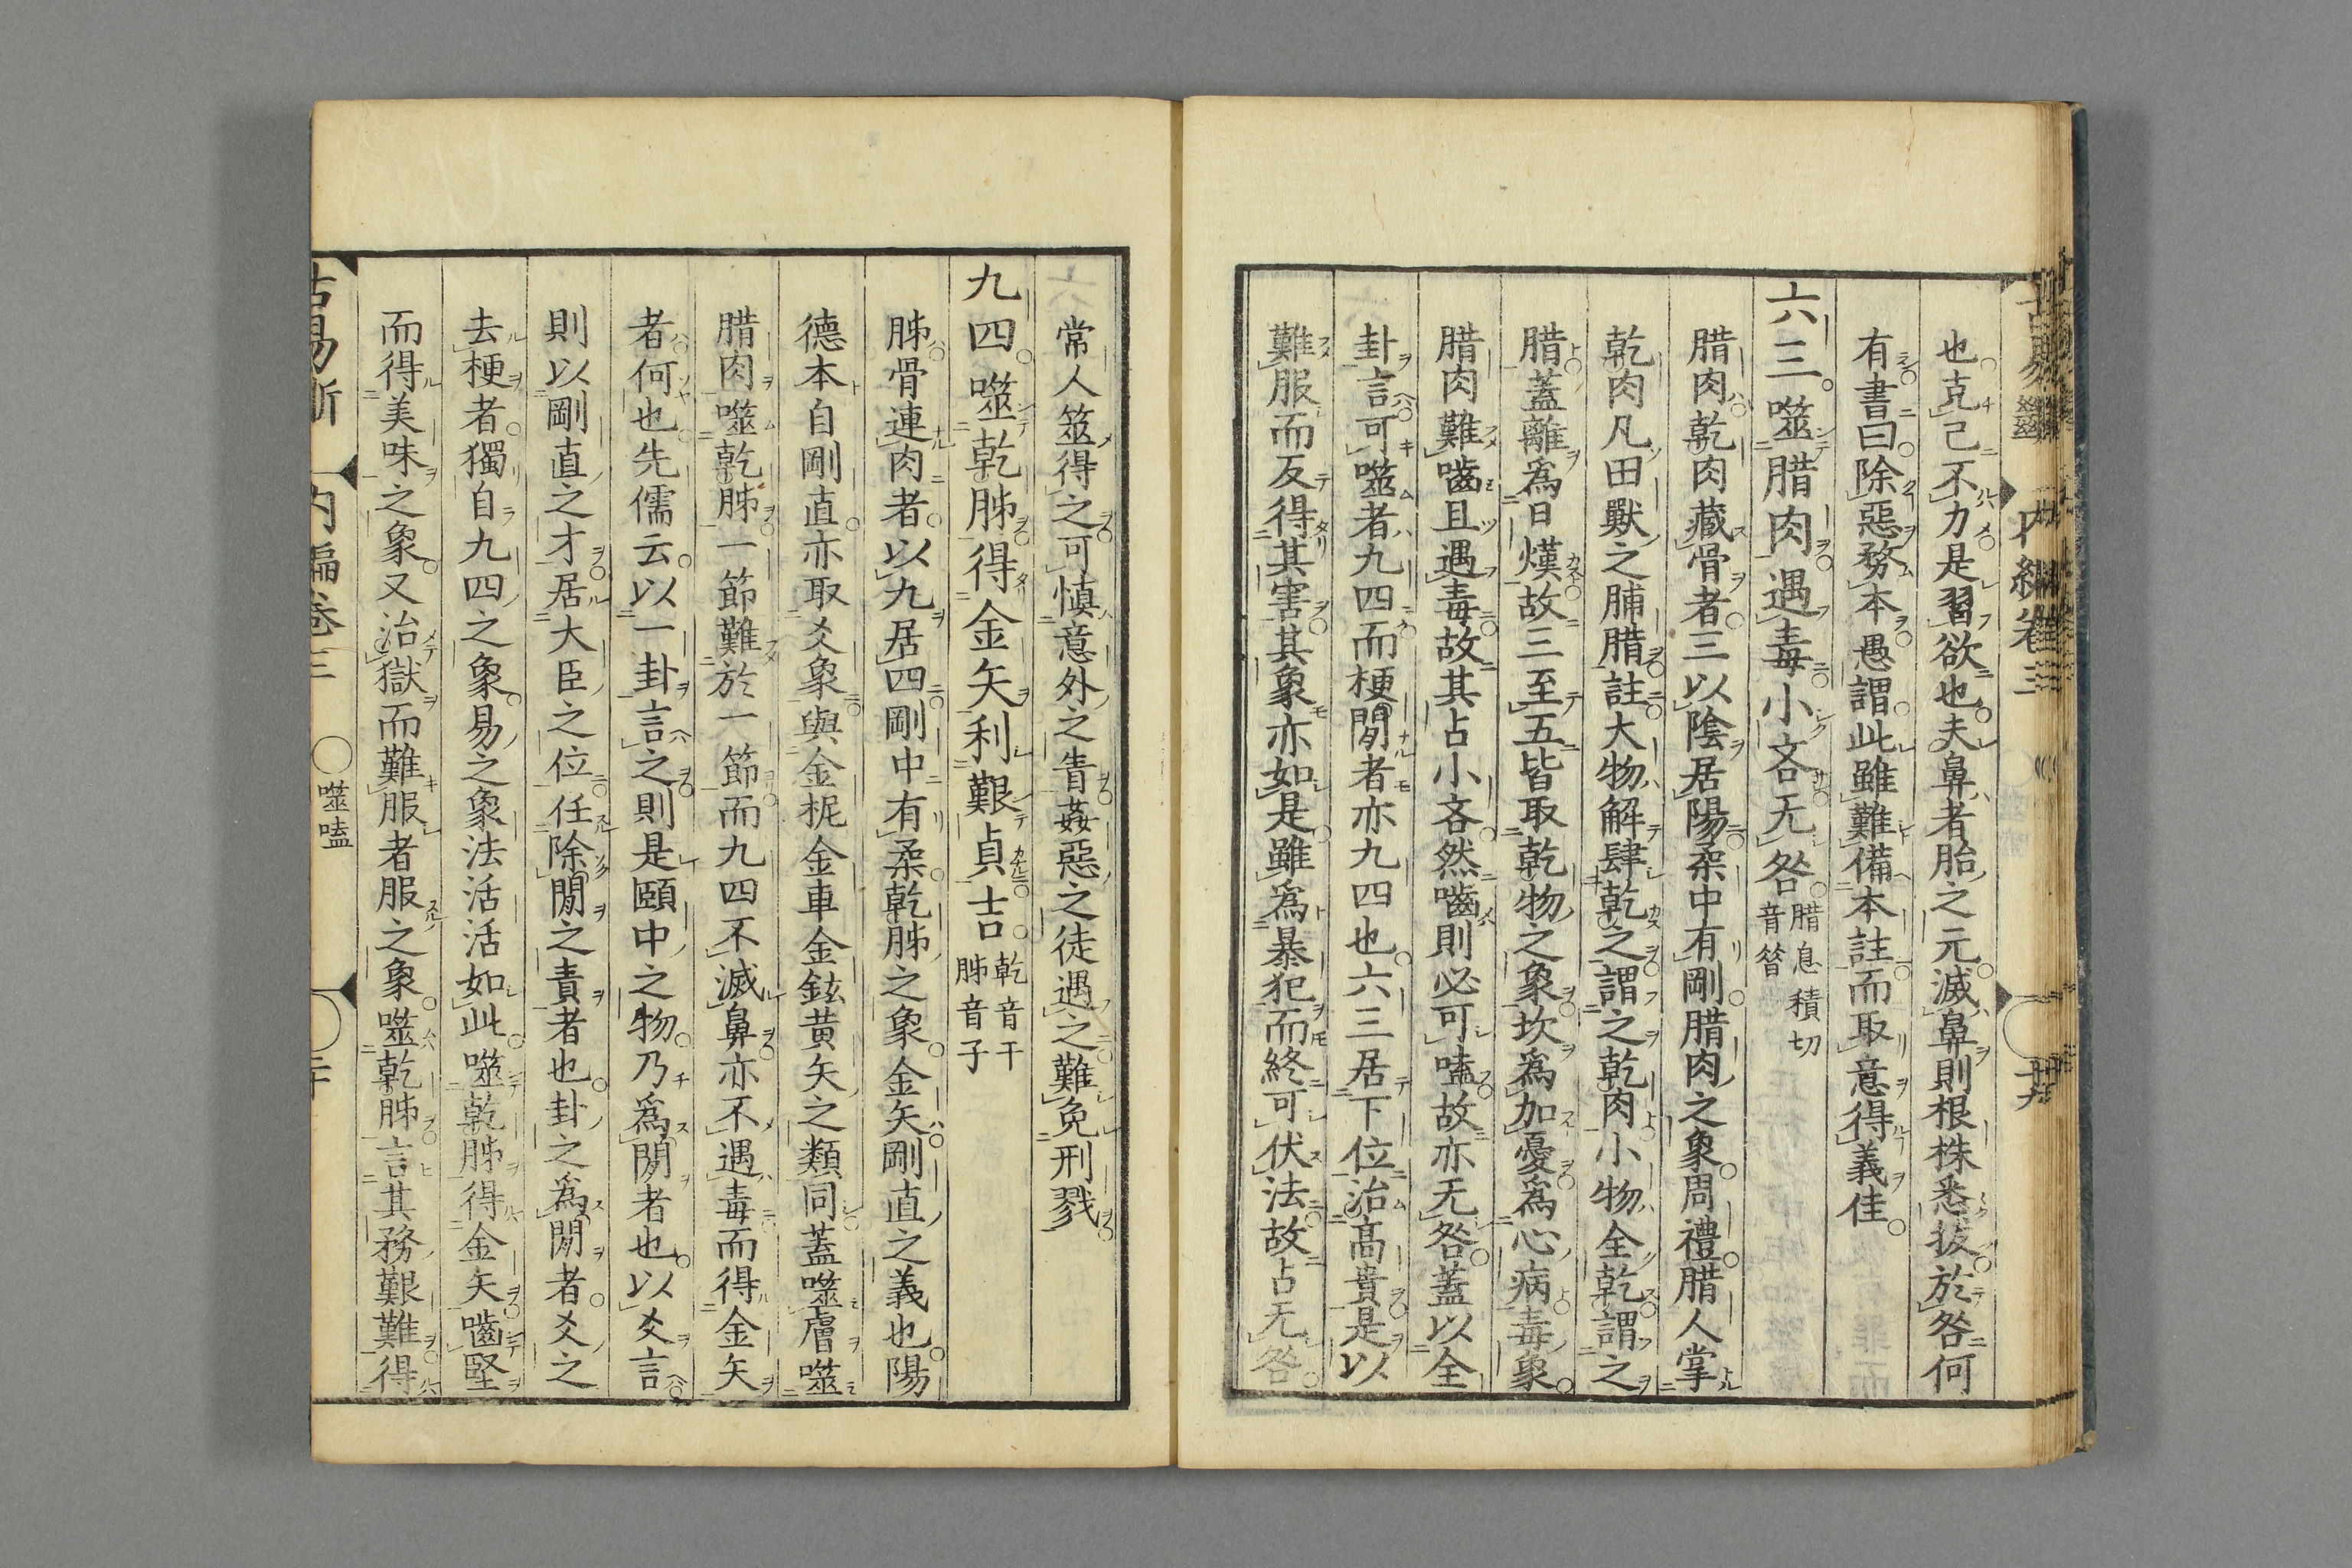 也克己不力是習欲也夫鼻者胎之元滅鼻則根株悉拔於咎何
有書曰除惡務本愚謂此雖難備本註而取意得義佳
六三噬腊肉遇毒小吝无咎腊息積切音昝
腊肉乾肉藏骨者三以陰居陽柔中有剛腊肉之象周禮腊人掌
乾肉凡田獸之脯腊註大物解肆乾之謂之乾肉小物全乾謂之
腊蓋離爲日熯故三至五皆取乾物之象坎爲加憂爲心病毒象
腊肉難嚙且遇毒故其占小吝然嚙則必可嗑故亦无咎蓋以全
卦言可噬者九四而梗閒者亦九四也六三居下位治高貴是以
難服而反得其害其象亦如是雖爲暴犯而終可伏法故占无咎
常人筮得之可慎意外之眚姦惡之徒遇之難免刑戮
九四噬乾胏得金矢利艱貞吉乾音干胏音子
胏骨連肉者以九居四剛中有柔乾胏之象金矢剛直之義也陽
德本自剛直亦取爻象與金柅金車金鉉黄矢之類同蓋噬膚噬
腊肉噬乾胏一節難於一節而九四不滅鼻亦不遇毒而得金矢
者何也先儒云以一卦言之則是頤中之物乃爲閒者也以爻言
則以剛直之才居大臣之位任除閒之責者也卦之爲閒者爻之
去梗者獨自九四之象易之象法活活如此噬乾胏得金矢嚙堅
而得美味之象又治獄而難服者服之象噬乾胏言其務艱難得
古易斷 内編卷三 ○噬嗑